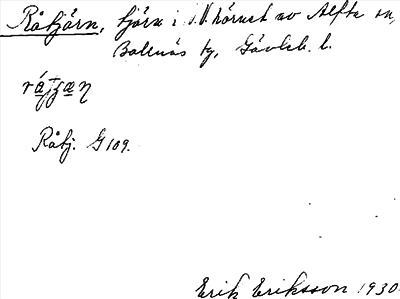 Råtjärn, tjärn i s.V. hörnet av Alfta sn,
Bollnäs tg, Gävleb. l.
Råtj. G 109.
Erik Eriksson 1930.